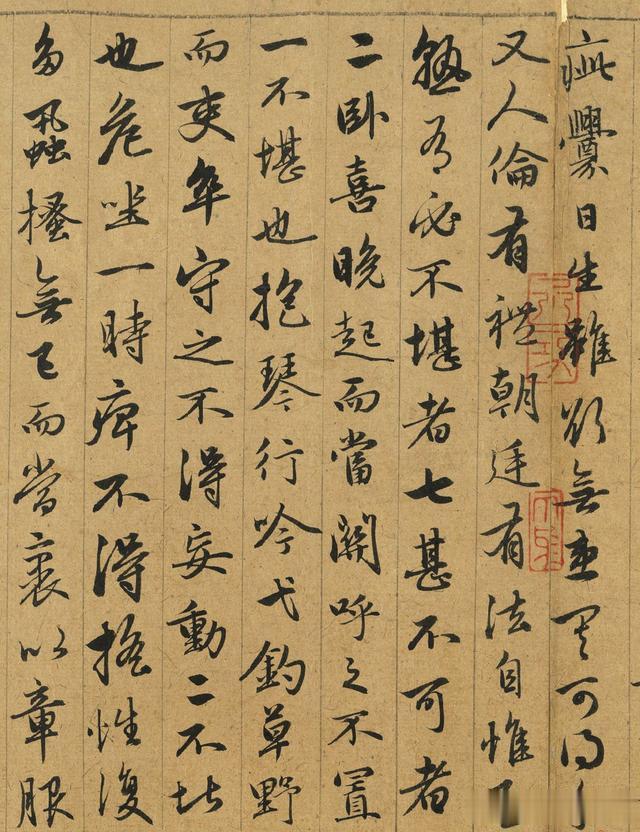 疵釁日生雖欲無患其可得
又人倫有禮朝廷有法自惟
熟有必不堪者七甚不可者
二卧喜晚起而當關呼之不置
一不堪也抱琴行吟弋釣草野
而吏卒守之不得妄動二不堪
也危坐一時痺不得搖性復
多蝨搔無已而當裹以章服